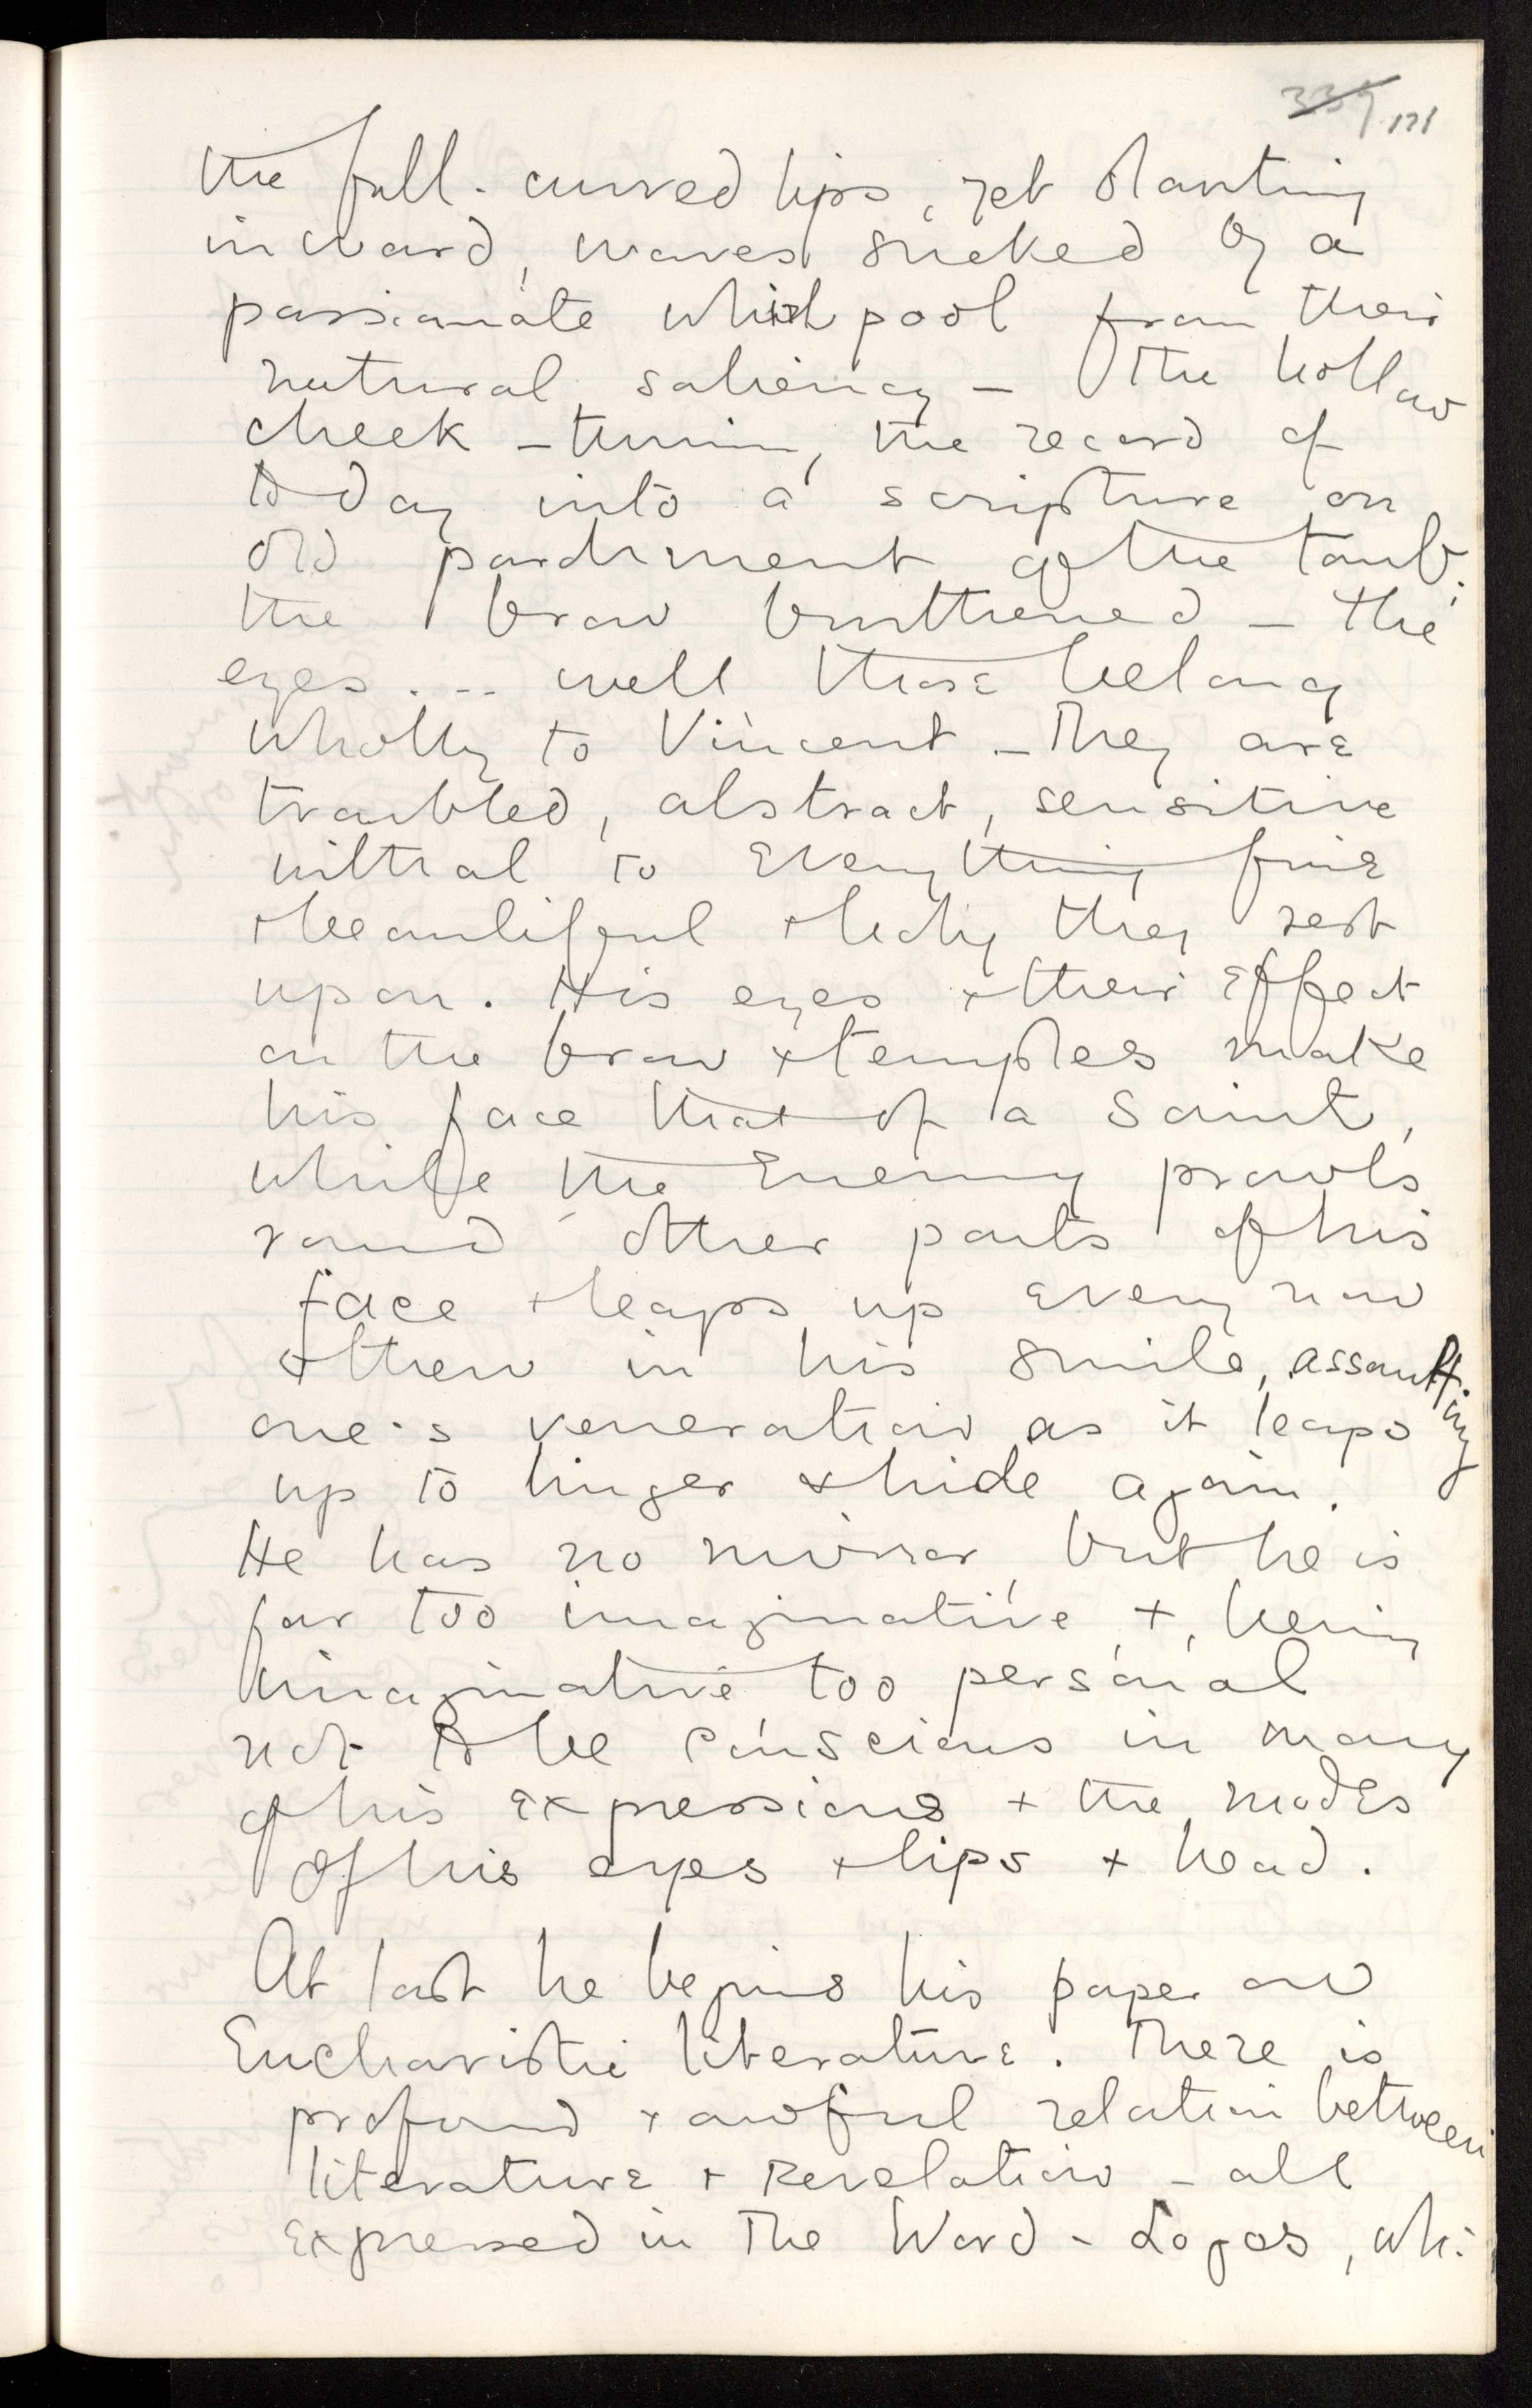 339 171
the full-curved lips, yet slanting
inward, waves sucked by a
passionate whirlpool from their
natural saliency — the hollow
cheek — turning the record of
to day into a scripture on
old parchment of the tomb:
the brow burthened — the
eyes ... well those belong
wholly to Vincent — They are
troubled, abstract, sensitive
withal to Everything fine
+ beautiful + holy they rest
upon. His eyes + their Effect
on the brow + temples make
his face that of a Saint,
while the Enemy prowls
round other parts of his
face + leaps up every now
+ then in his smile, assaulting
one's veneration as it leaps
up to linger + hide again.
He has no mirror but he is
far too imaginative, +, being
imaginative too personal
not to be conscious in many
of his expressions + the modes
of his eyes + lips + head.
At last he begins his paper on
Eucharistic literature. There is
profound + awful relation between
literature + Revelation — all
Expressed in The Word - Logos, wh: